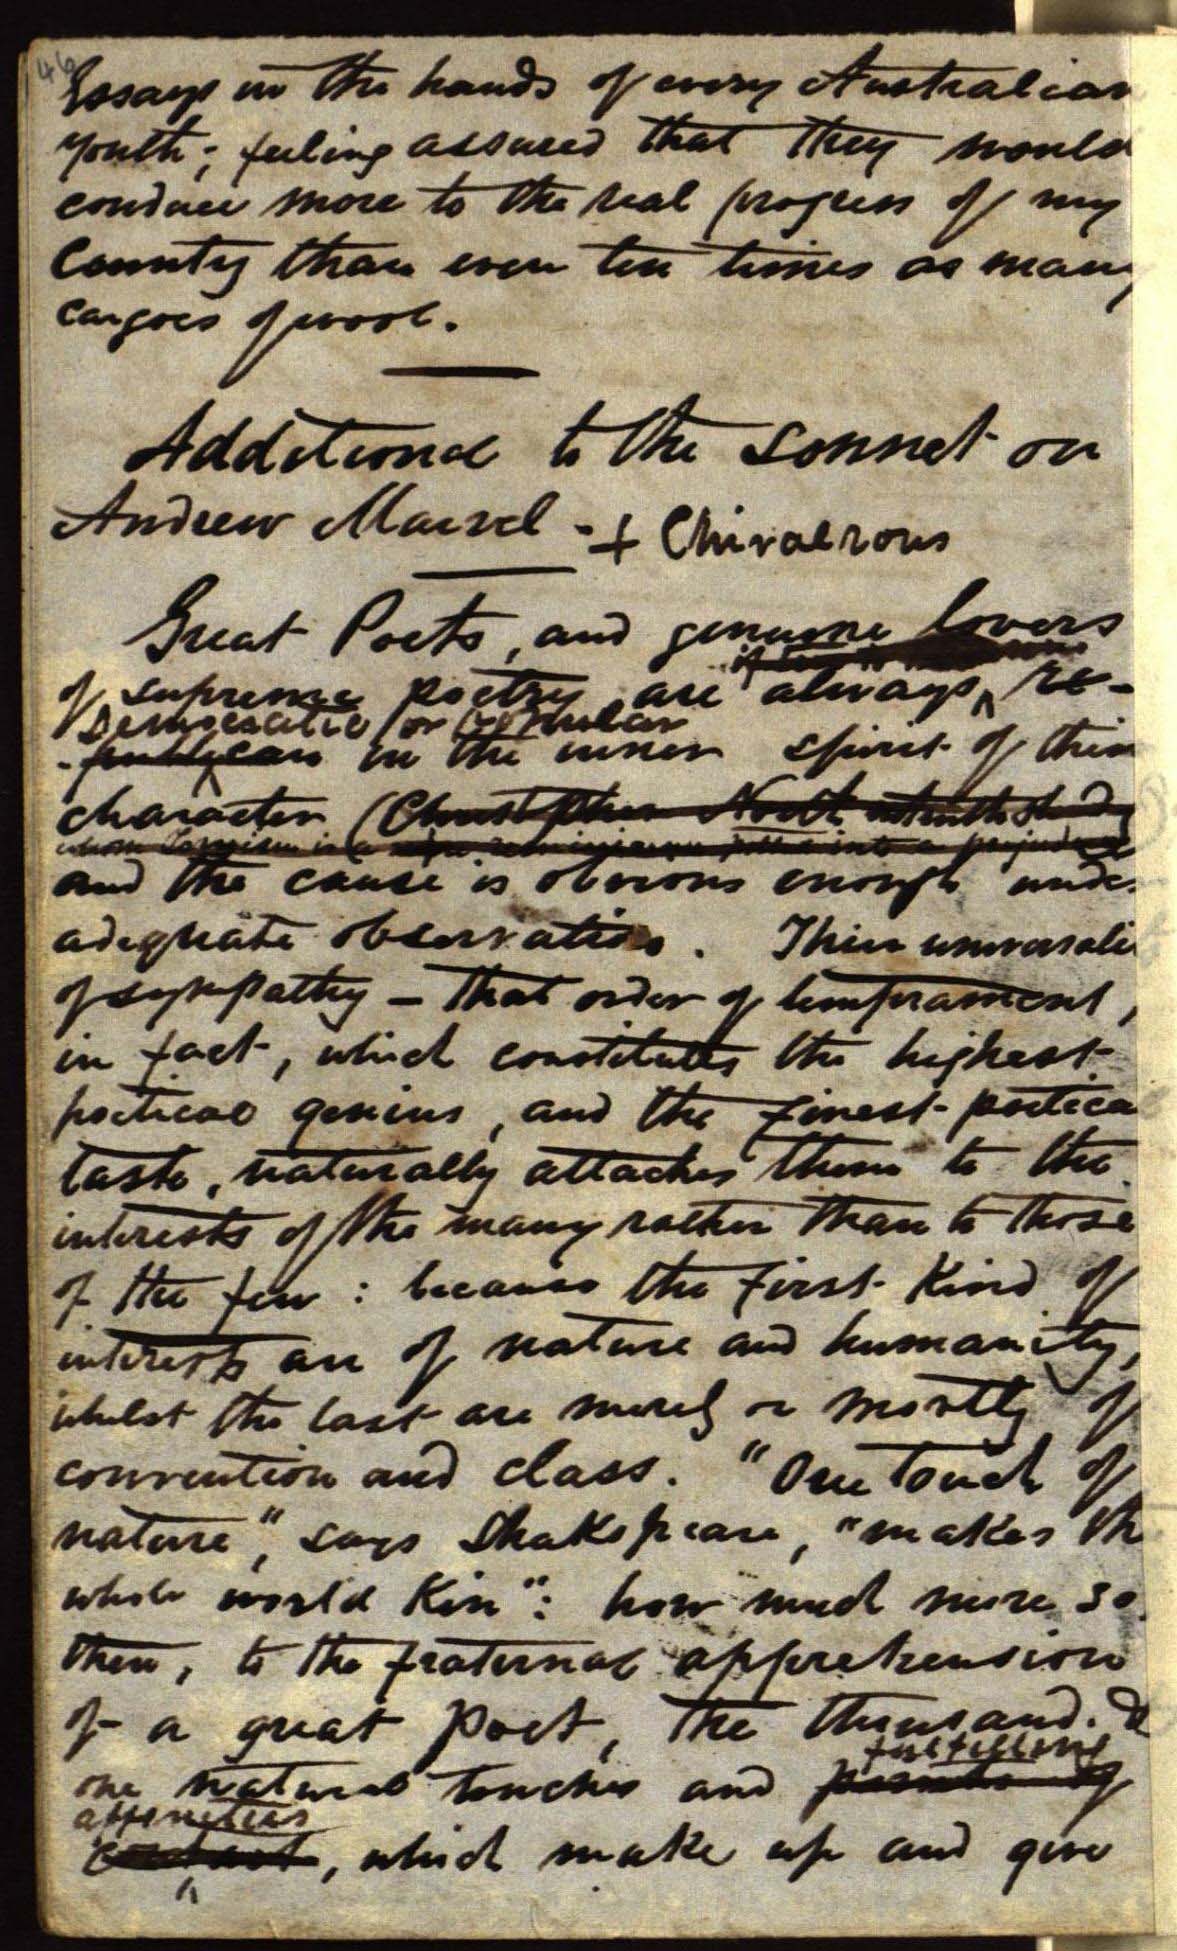 46
Essays in the hands of every Australian
youth; feeling assured that they would
conduce more to the real progress of my
Country than even ten times as many
cargoes of wool.
Additional to the Sonnet on
Andrew Marvel - + Chivalrous
Great Poets, and genuine lovers
of supreme poetry are always re-
Democratic or popular
-publican in the inner spirit of their
character (Christopher North
and the cause is obvious enough under
adequate observation. Their universali
of sympathy – that order of temprament,
in fact, which constitutes the highest
poetical genius, and the finest poetica
taste, naturally attaches them to the
interests of the many rather than to those
of the few: because the first Kind of
interests are of nature and humanity,
whilst the last are merely or mostly of
convention and class. "One touch of
nature", says Shakspeare, "makes th
whole world Kin": how much more so
then, to the fraternal apprehension
of a great Poet, the thousand. &
one natural touches and points of
affinities
contact, which make up and give